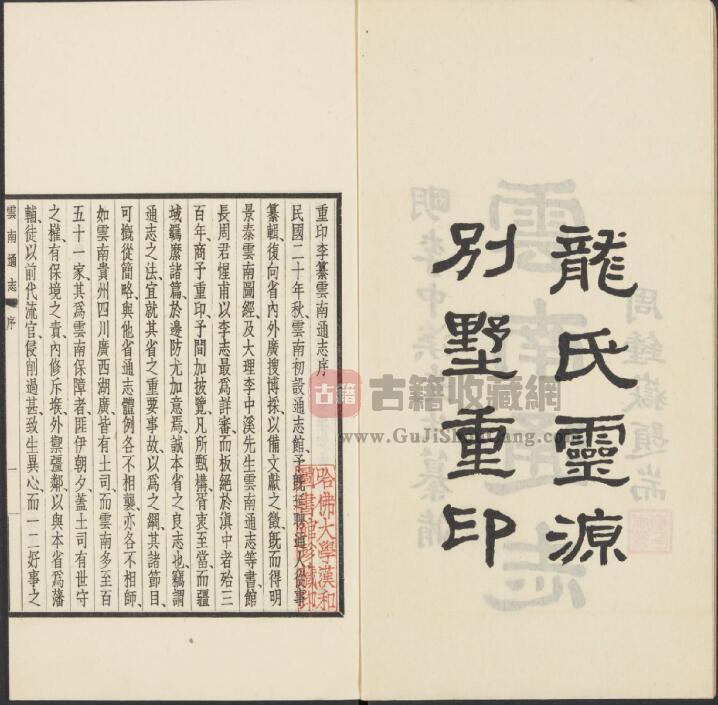 龍氏靈源
別墅重印
重印李纂雲南通志序
民國二十年秋雲南初設通志館予既延聘通人從事
纂輯、復向省內外廣搜博採以備文獻之徵、旣而得明
景泰雲南圖經及大理李中溪先生雲南通志等書館
長周君惺甫以李志最爲詳審而板絕於滇中者殆三
百年、商予重印予間加披覽凡所甄構胥衷至當、而疆
域羈縻諸篇於邊防尤加意焉、誠本省之良志也、竊謂
通志之法、宜就其省之重要事故、以爲之綱、其諸節目、
可概從簡略、與他省通志體例、各不相襲、亦各不相師、
如雲南貴州四川廣西湖廣皆有土司、而雲南多至百
五十一家、其爲雲南保障者、匪伊朝夕、蓋土司有世守
之權、有保境之責、內修斥堠、外禦彊鄰、以與本省爲藩
輔、徒以前代流官侵削過甚、致生異心、而一二好事之
雲南通志 序
一
哈佛大學漢和
圖書館珍藏印
古籍
古籍收藏網
www.GuJiShouCang.com
周鍾嶽題耑